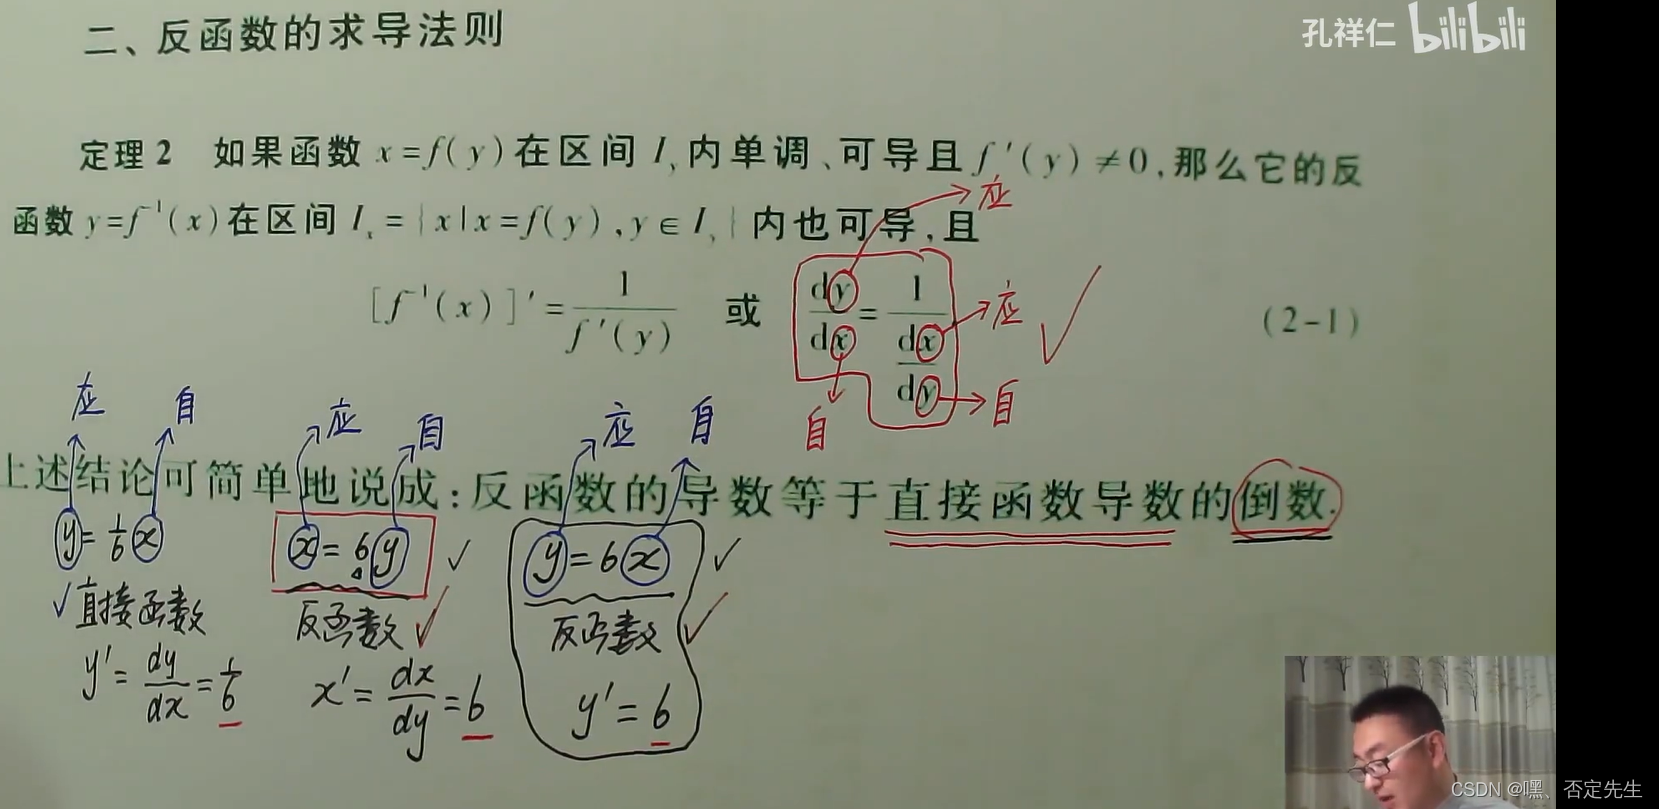 二、反函数的求导法则
孔祥仁 bilibili
定理2 如果函数 x=f(y)在区间 I_y 内单调、可导且 f′(y)≠0,那么它的反
函数 y=f⁻¹(x)在区间 I_x={x|x=f(y),y∈I_y}内也可导,且
应
[f⁻¹(x)]′=1/f′(y) 或 dy/dx=1/(dx/dy) (2-1)
应
自 自
应 自 应 自 应 自
上述结论可简单地说成:反函数的导数等于直接函数导数的倒数.
y=1/6 x x=6y y=6x
直接函数 反函数 反函数
y′=dy/dx=1/6 x′=dx/dy=6 y′=6
CSDN @嘿、否定先生